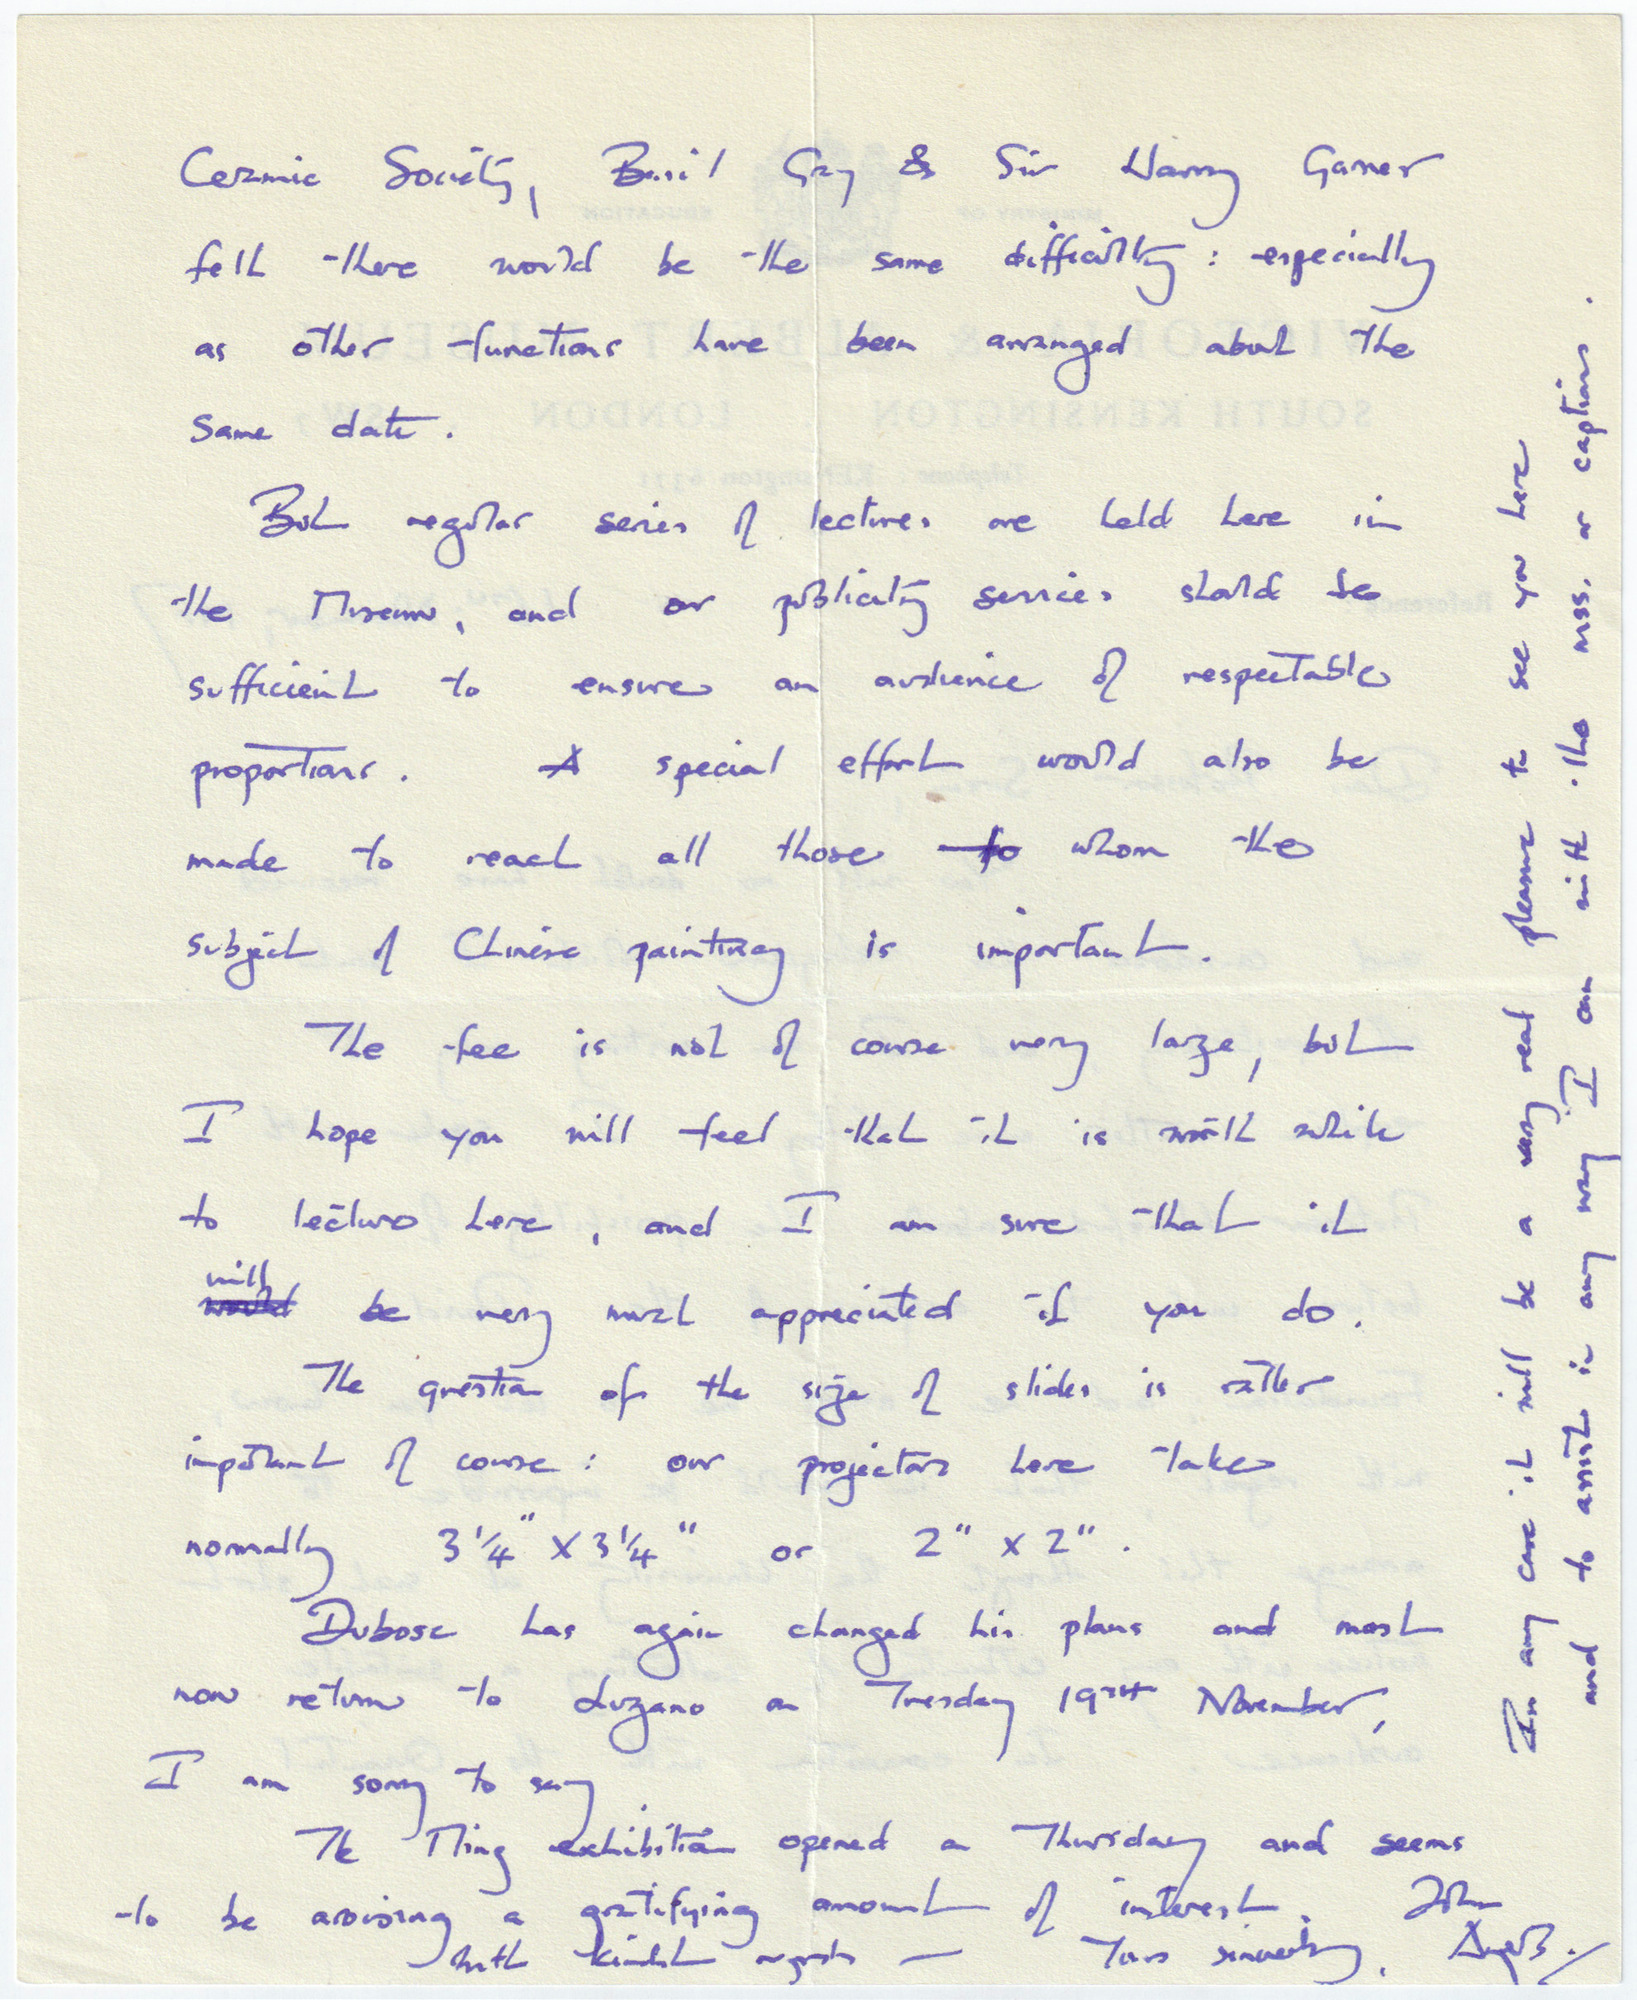 Ceramic Society, Basil Gray & Sir Harry Garner
felt there would be the same difficulty : especially
as other functions have been arranged about the
same date.
But regular series of lectures are held here in
the Museum, and our publicity services should be
sufficient to ensure an audience of respectable
proportions. A special effort would also be
made to reach all those to whom the
subject of Chinese painting is important.
The fee is not of course very large, but
I hope you will feel that it is worth while
to lecture here, and I am sure that it
will
would be very much appreciated if you do.
The question of the size of slides is rather
important of course : our projectors here take
normally 3 1/4" X 3 1/4" or 2" x 2".
Dubosc has again changed his plans and must
now return to Lugano on Tuesday 19TH November,
I am sorry to say
The Ming exhibition opened on Thursday and seems
to be arousing a gratifying amount of interest.
With kindest regards — Yours sincerely, John
In any case it will be a very real pleasure to see you here
and to assist in any way I can with the mss. or captions.